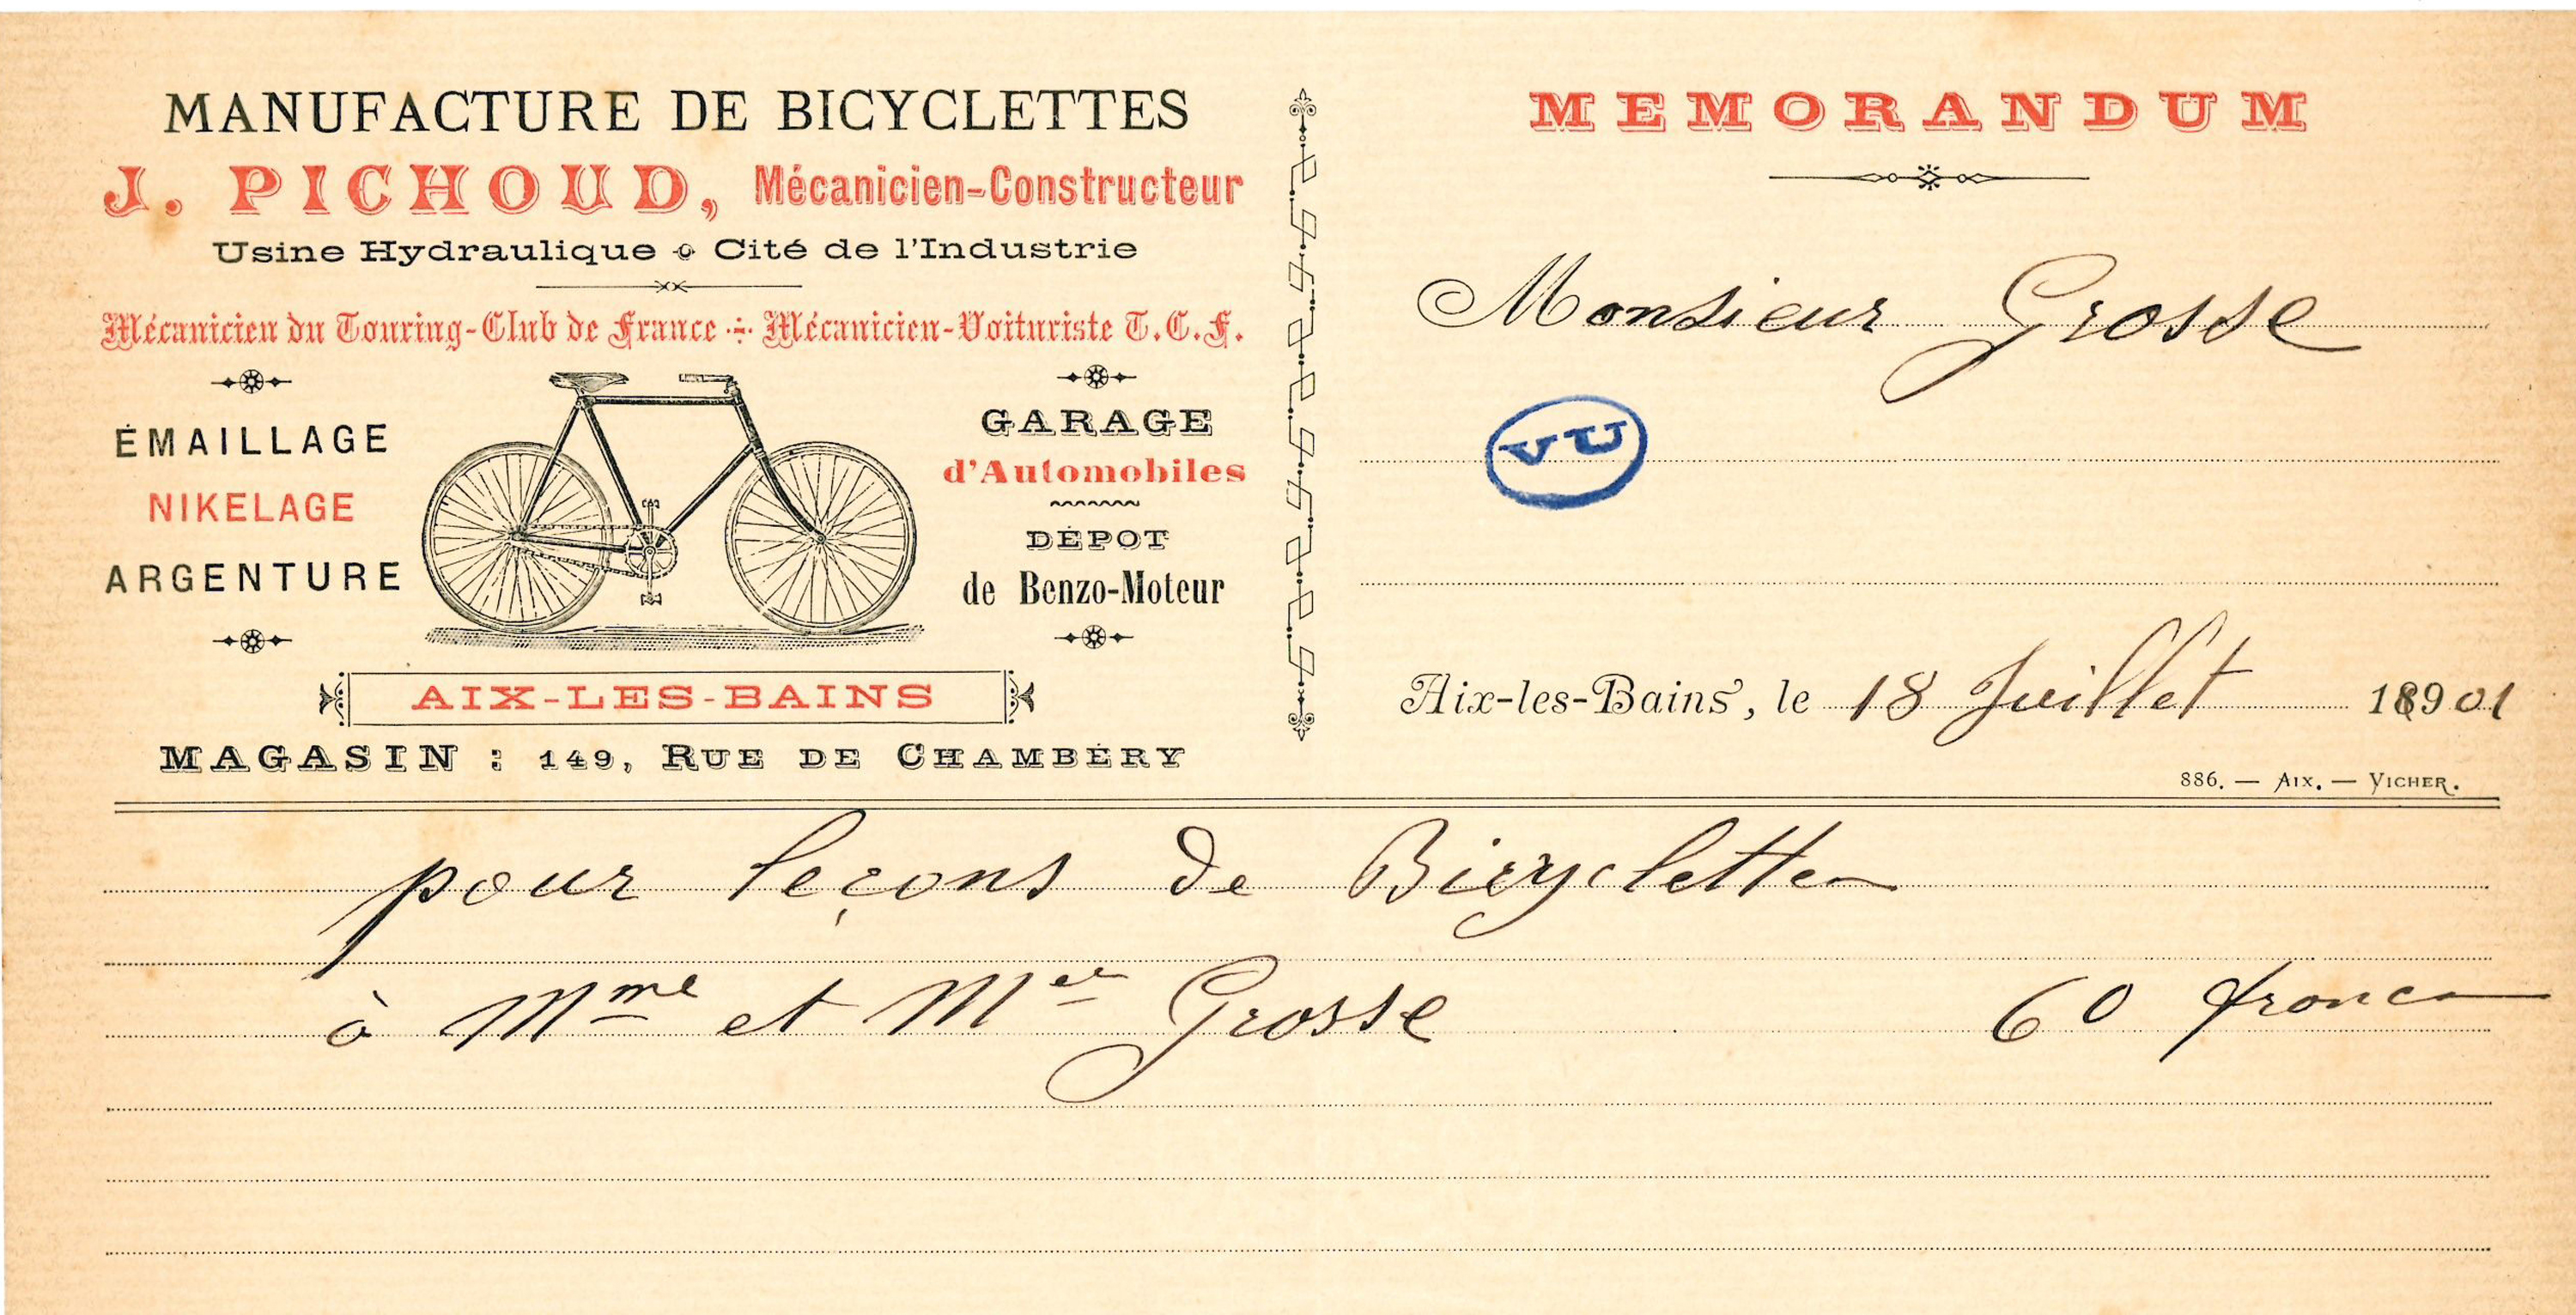 MANUFACTURE DE BICYCLETTES
J. PICHOUD, Mécanicien-Constructeur
Usine Hydraulique Cité de l'Industrie
Mécanicien du Touring-Club de France Mécanicien-Voituriste T.C.F.
ÉMAILLAGE
NIKELAGE
ARGENTURE
GARAGE
d'Automobiles
DÉPOT
de Benzo-Moteur
AIX-LES-BAINS
MAGASIN : 149, RUE DE CHAMBÉRY
MEMORANDUM
Monsieur Grosse
VU
Aix-les-Bains, le 18 Juillet 1901
886. — AIX. — VICHER.
pour leçons de Bicyclette
à Mme et Mer Grosse 60 francs